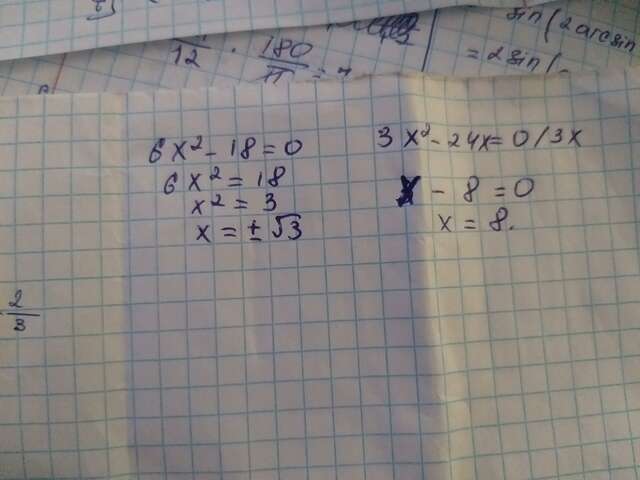 12 · 180
π
sin(2 arcsin
= 2 sin(
6x² - 18 = 0
6x² = 18
x² = 3
x = ± √3
3x² - 24x = 0 / 3x
x - 8 = 0
x = 8.
2
3